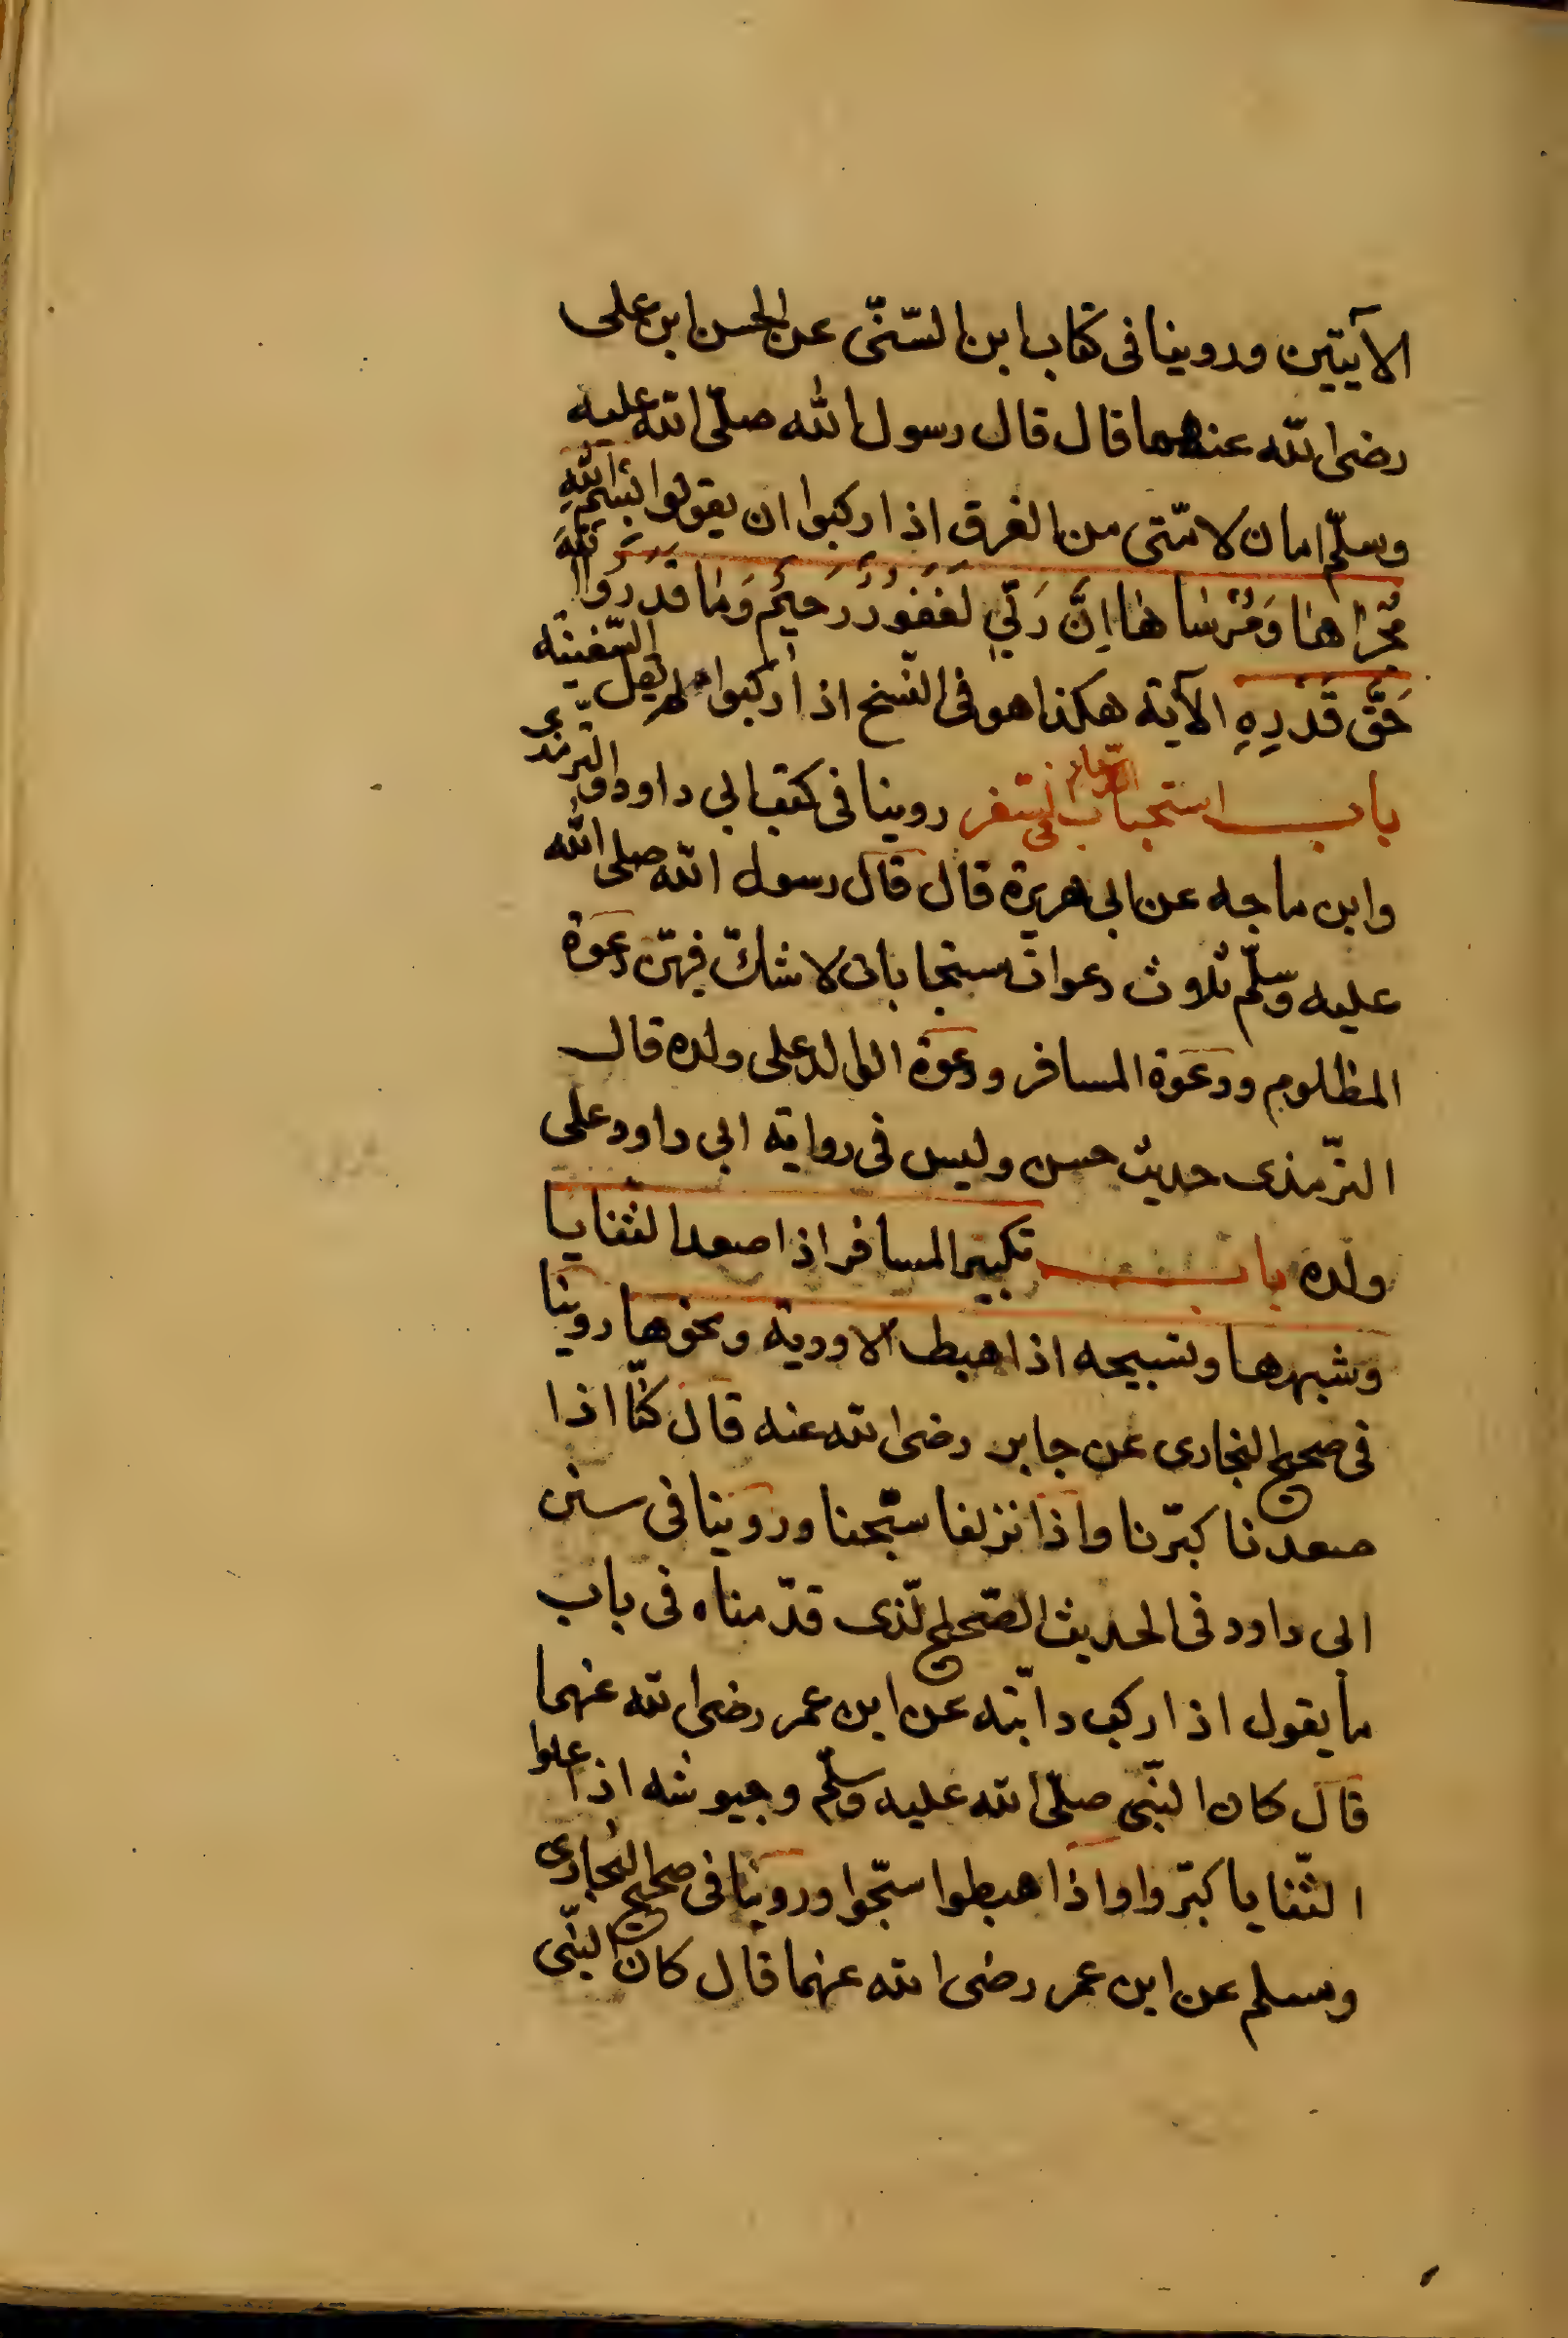 الآيتين وروينا فى كتاب ابن السّنّى عن الحسن ابن على
رضى الله عنهما قال قال رسول الله صلّى الله عليه
وسلّم امان لامّتى من الغرق اذا ركبوا ان يقولوا بِسْمِ اللهِ
مُجْراهَا وَمُرْسَاهَا اِنَّ رَبِّي لَغَفُورٌ رَحيمٌ وَمَا قَدَرُوا اللهَ
حَقَّ قَدْرِهِ الآية هكذا هو فى النّسخ اذا ركبوا لم يقل السّفينة
باب استحباب الدّعاء فى السّفر روينا فى كتب ابى داود والتّرمذى
وابن ماجه عن ابى هريرة قال قال رسول الله صلى الله
عليه وسلّم ثلاث دعوات مستجابات لا شكّ فيهنّ دعوة
المظلوم ودعوة المسافر ودعوة الوالد على ولده قال
التّرمذى حديث حسن وليس فى رواية ابى داود على
ولده باب تكبير المسافر اذا صعد الثنايا
وشبهها وتسبيحه اذا هبط الاودية ونحوها روينا
فى صحيح البخارى عن جابر رضى الله عنه قال كنّا اذا
صعدنا كبّرنا واذا نزلنا سبّحنا وروينا فى سنن
ابى داود فى الحديث الصّحيح الّذى قدّمناه فى باب
ما يقول اذا ركب دابّته عن ابن عمر رضى الله عنهما
قال كان النّبى صلّى الله عليه وسلّم وجيوشه اذا علوا
الثّنايا كبّروا واذا هبطوا سبّحوا وروينا فى صحيح البخارى
ومسلم عن ابن عمر رضى الله عنهما قال كان النّبى